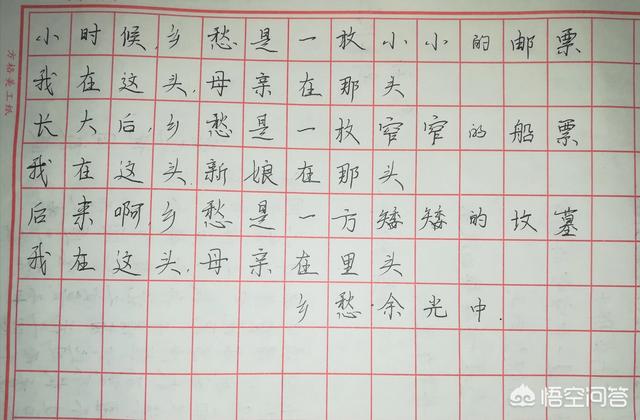 小时候,乡愁是一枚小小的邮票
我在这头,母亲在那头
长大后,乡愁是一枚窄窄的船票
我在这头,新娘在那头
后来啊,乡愁是一方矮矮的坟墓
我在这头,母亲在里头
乡愁·余光中.
方格美工纸
悟空问答